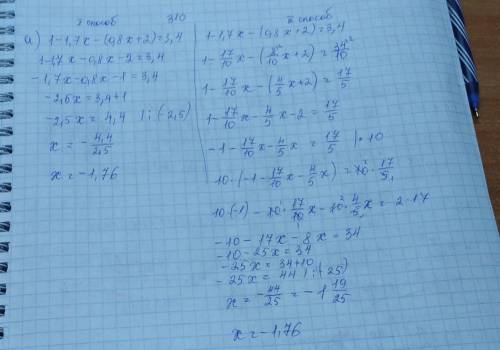 I способ
310
а) 1-1,7x-(0,8x+2)=3,4
1-1,7x-0,8x-2=3,4
-1,7x-0,8x-1=3,4
-2,5x=3,4+1
-2,5x=4,4 |:(-2,5)
x=-4,4/2,5
x=-1,76
II способ
1-1,7x-(0,8x+2)=3,4
1-17/10x-(8/10x+2)=34/10
1-17/10x-(4/5x+2)=17/5
1-17/10x-4/5x-2=17/5
-1-17/10x-4/5x=17/5 |·10
10·(-1-17/10x-4/5x)=10²·17/5₁
10·(-1)-10·17/10x-10²·4/5x=2·17
-10-17x-8x=34
-10-25x=34
-25x=34+10
-25x=44 |:(25)
x=-44/25=-1 19/25
x=-1,76